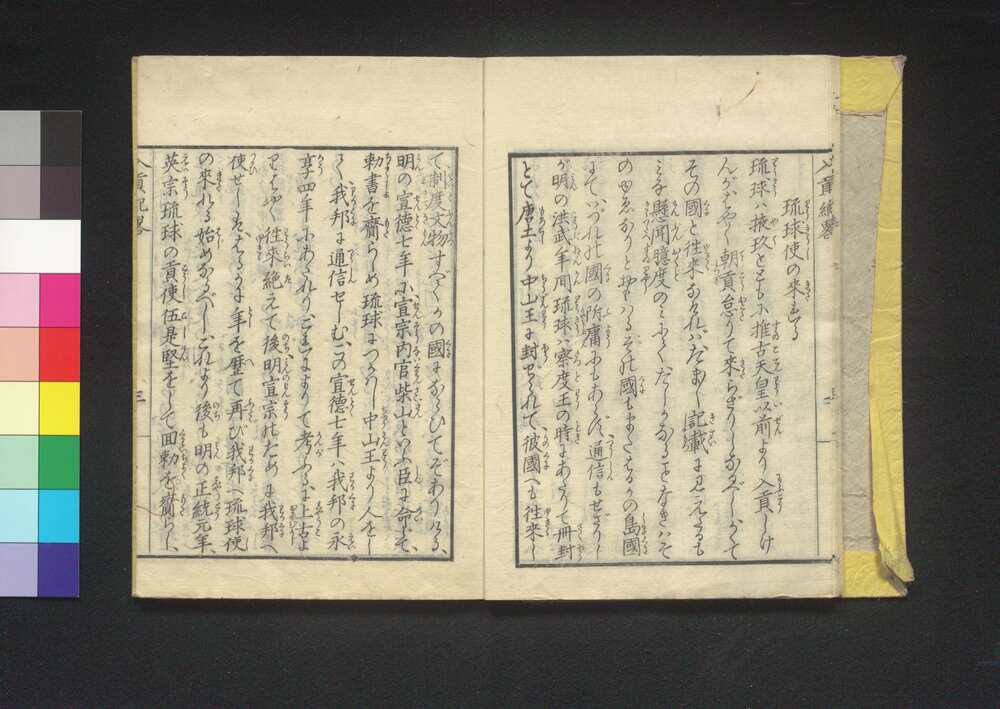 入貢紀畧
琉球使の来れる
琉球ハ掖玖とともに推古天皇以前より入貢しけ
んがはやく朝貢怠りて来らざりしなるべしかくて
その國と往来なけれハたま〳〵記載に見えたるも
みな懸聞臆度のみふしてたしかなることなきハそ
のゆゑなりとやハる
にていづれの國の附庸にもあらず通信もせざりし
が明の洪武年間琉球ハ察度王の時にあたりて冊封
とて唐土より中山王に封せられて彼國へも往来し
て制度文物すべてかの國にならひてぞありける
明の宣徳七年に宣宗内官柴山といふ臣に命して
勅書を齎らしめ琉球につかハし中山王より人をし
て我邦に通信せしむこの宣徳七年ハ我邦の永
享四年にあたれりこれによりて考ふるに上古よ
りはやく往来絶えて後明宣宗のために我邦へ
使せしもはるかに年を歴て再び我邦へ琉球使
の来れる始めなるべしこれより後も明の正統元年
英宗琉球の貢使伍是堅をして回勅を齎らし
入貢紀畧
三